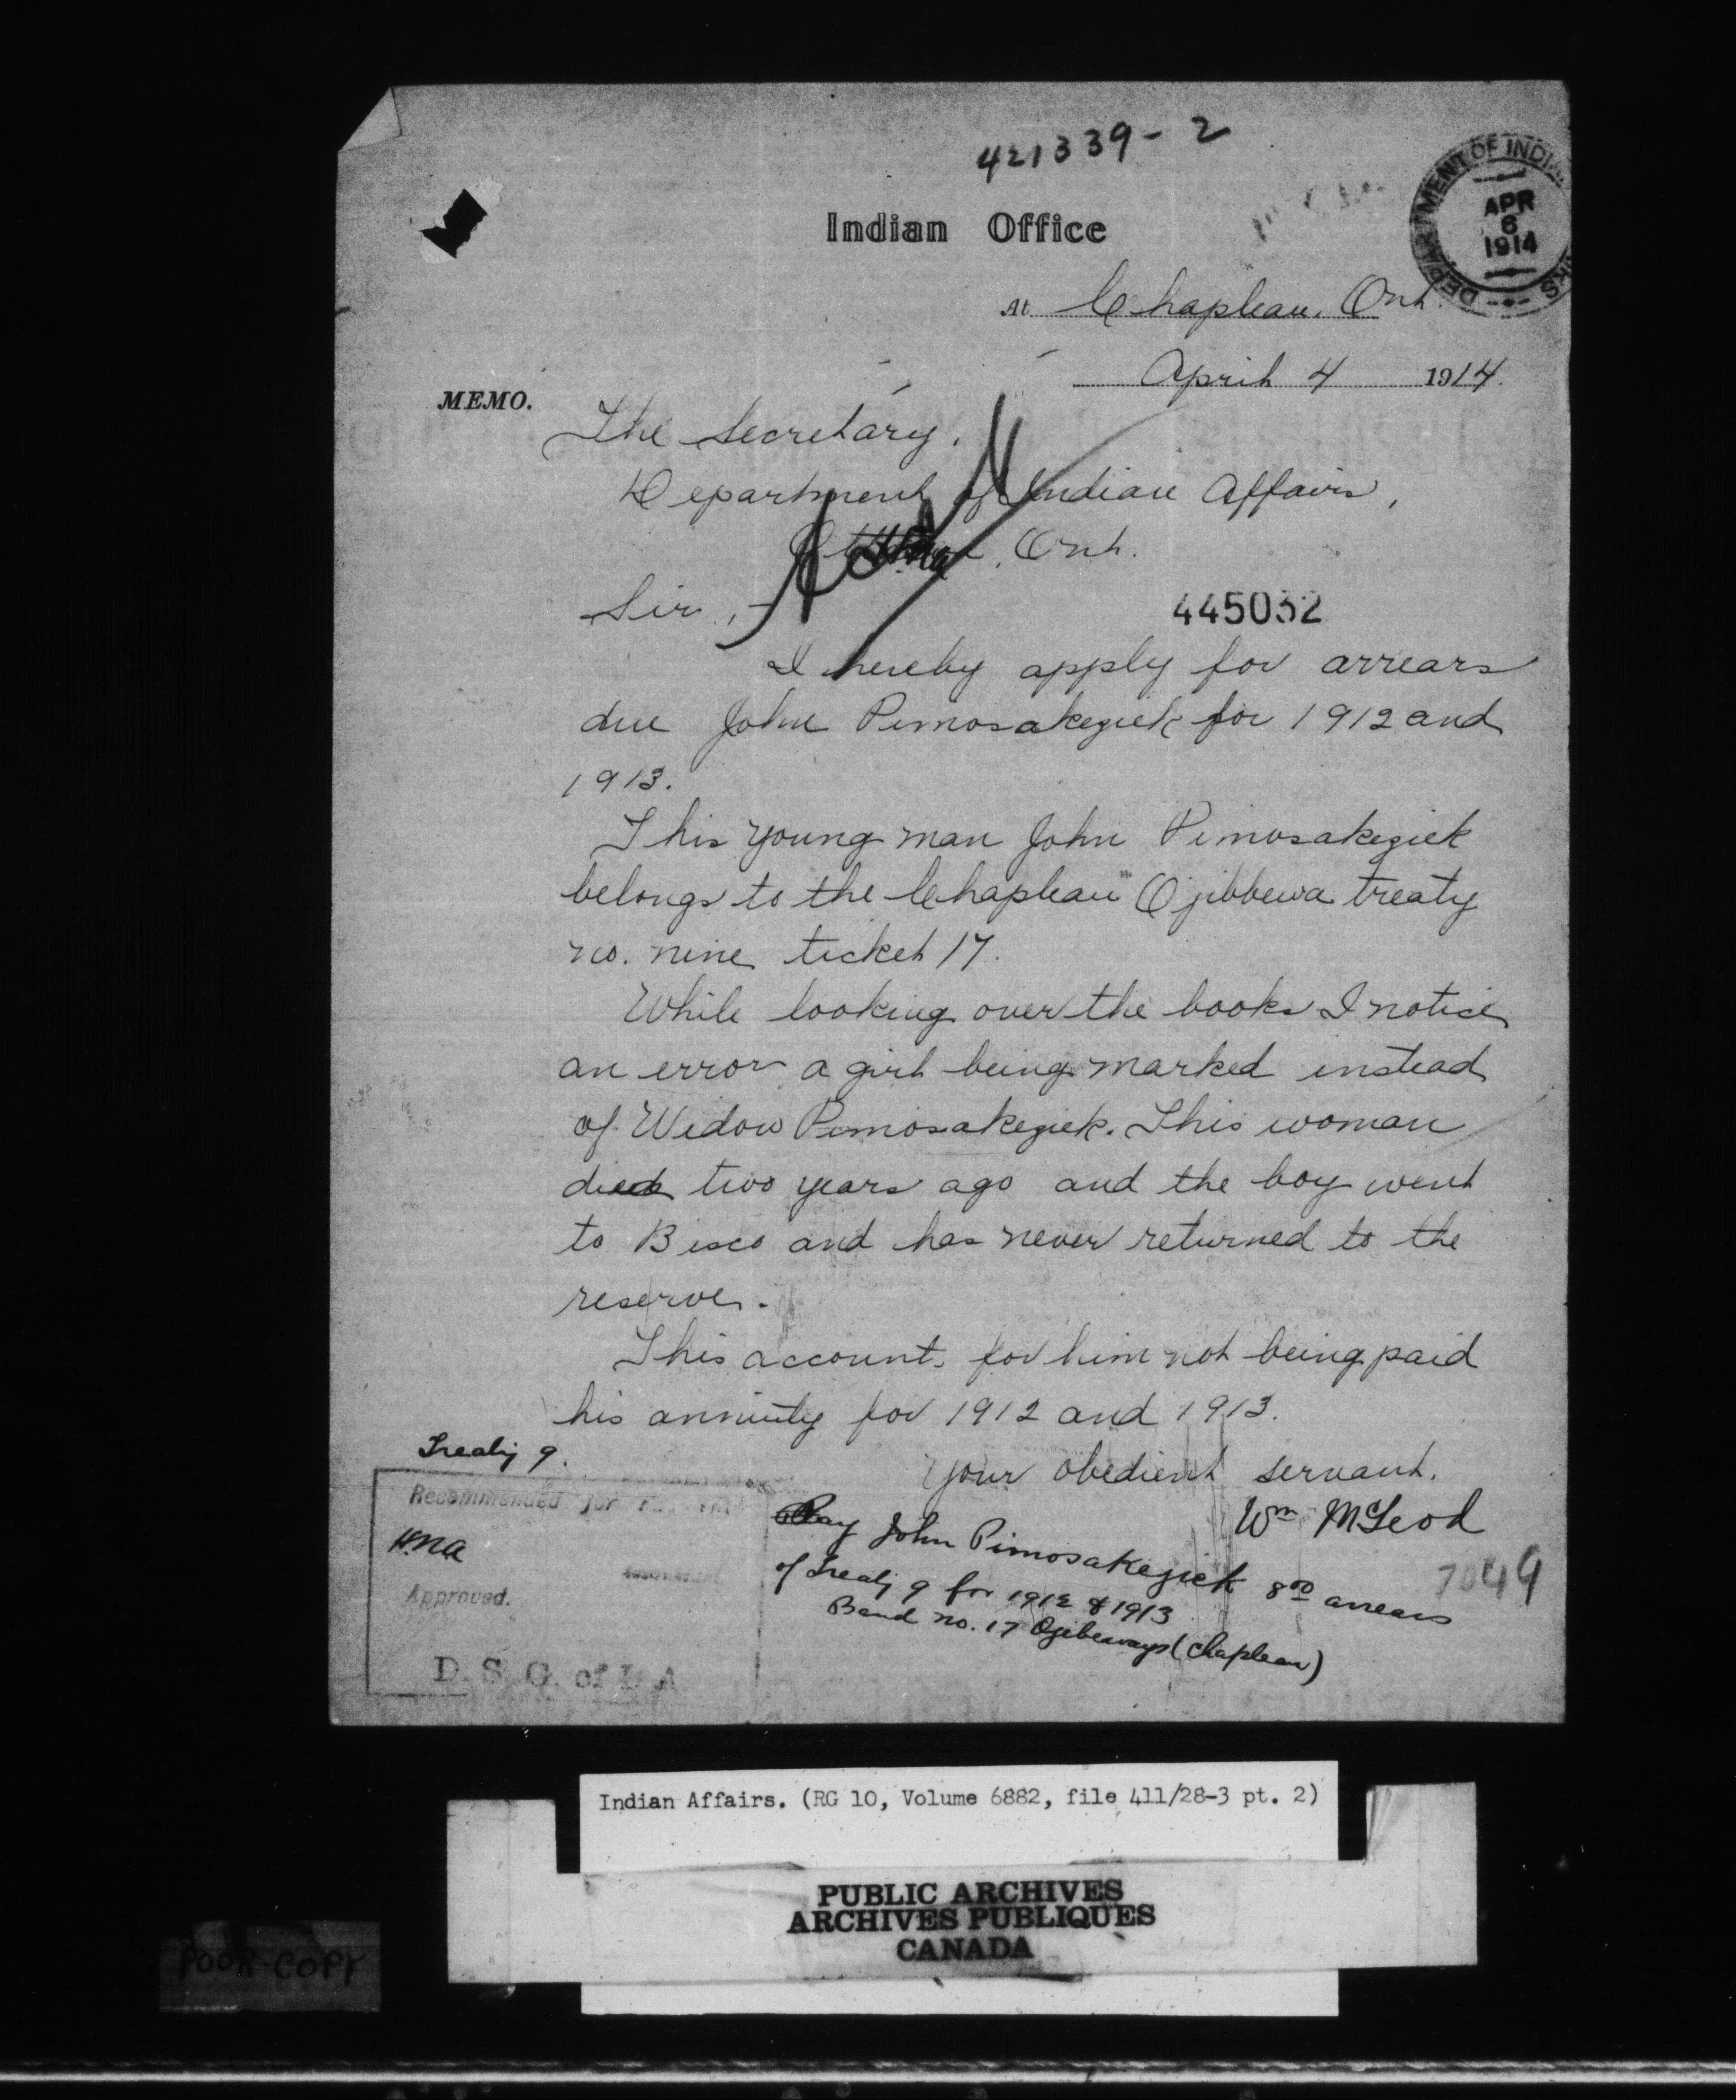 421339-2
DEPARTMENT OF INDIA
APR
6
1914
Indian Office
At Chapleau, Ont.
April 4 1914.
MEMO.
The Secretary,
Department of Indian Affairs,
Ottawa, Ont.
Sir,
445032
I hereby apply for arrears
due John Pimosakegiek for 1912 and
1913.
This young man John Pimosakegiek
belongs to the Chapleau Ojibbewa treaty
no. nine ticket 17.
While looking over the books I notice
an error a girl being marked instead
of Widow Pimosakegiek. This woman
died two years ago and the boy went
to Bisco and has never returned to the
reserve.
This accounts for him not being paid
his annuity for 1912 and 1913.
Your obedient servant.
Wm McLeod
Treaty 9.
Recommended for
HMA
Approved.
D. S. G. of I. A.
Pay John Pimosakegiek 8 00 arrears
of Treaty 9 for 1912 & 1913
Band no. 17 Ojibeways (Chapleau)
7049
Indian Affairs. (RG 10, Volume 6882, file 411/28-3 pt. 2)
PUBLIC ARCHIVES
ARCHIVES PUBLIQUES
CANADA
POOR COPY